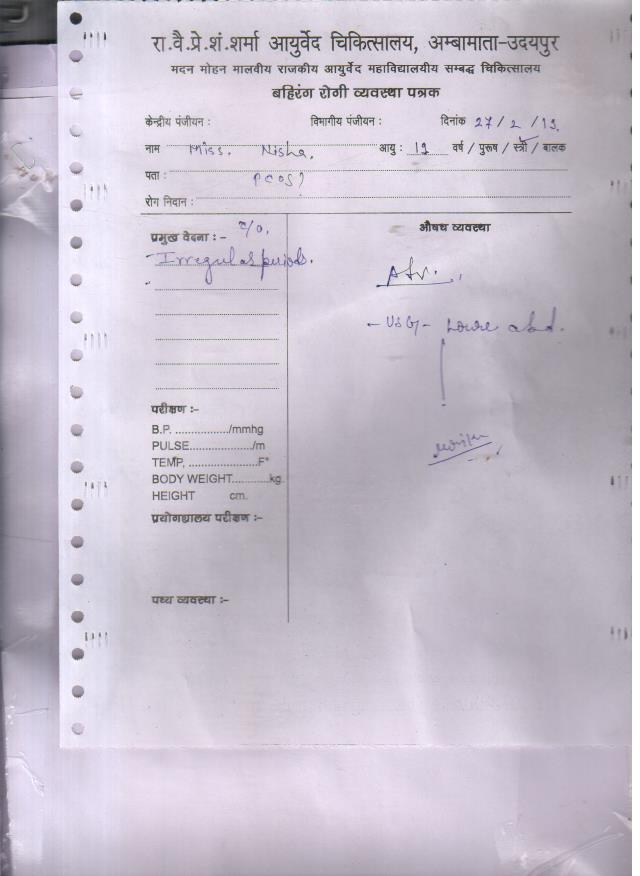 रा.वै.प्रे.शं.शर्मा आयुर्वेद चिकित्सालय, अम्बामाता-उदयपुर
मदन मोहन मालवीय राजकीय आयुर्वेद महाविद्यालयीय सम्बद्ध चिकित्सालय
बहिरंग रोगी व्यवस्था पत्रक
केन्द्रीय पंजीयन : विभागीय पंजीयन : दिनांक 27/2/13.
नाम Miss. Nisha, आयु : 19 वर्ष / पुरूष / स्त्री / बालक
पता : PCOS?
रोग निदान :
प्रमुख वेदना :- c/o.
Irregular periods.
औषध व्यवस्था
Adv.
- USG - Lower abd.
परीक्षण :-
B.P. ................./mmhg
PULSE...................../m
TEMP, ......................F°
BODY WEIGHT............kg.
HEIGHT cm.
प्रयोगशालय परीक्षण :-
पथ्य व्यवस्था :-